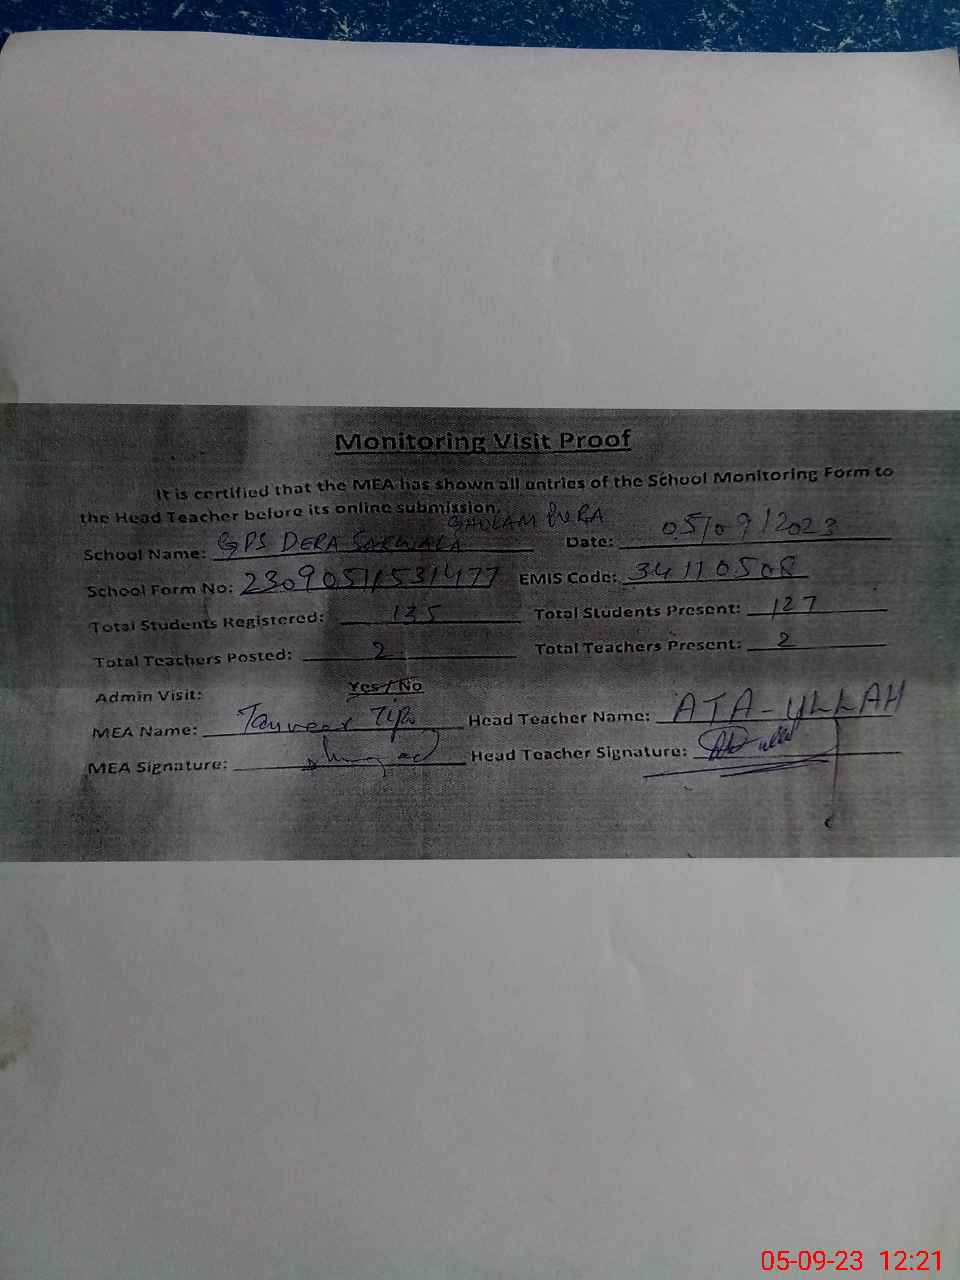 Monitoring Visit Proof
It is certified that the MEA has shown all entries of the School Monitoring Form to
the Head Teacher before its online submission.
GHULAM PURA
School Name: GPS DERA SARWALA Date: 05/09/2023
School Form No: 2309051531477 EMIS Code: 34110508
Total Students Registered: 135 Total Students Present: 127
Total Teachers Posted: 2 Total Teachers Present: 2
Admin Visit: Yes / No
MEA Name: Tanveer Tipu Head Teacher Name: ATA-ULLAH
MEA Signature: Head Teacher Signature:
05-09-23 12:21